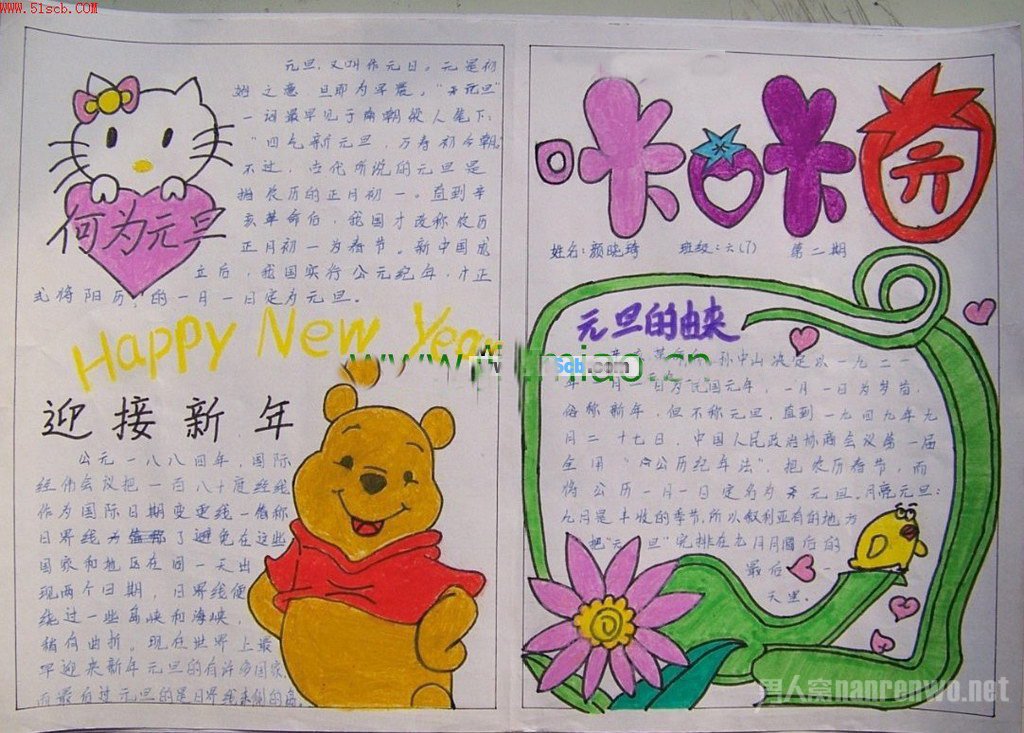 www.51scb.com
元旦,又叫作元日。元是初
始之意 旦即为早晨。"元旦"
一词最早见于南朝梁人笔下:
"四气新元旦,万寿初今朝
不过,当代所说的元旦是
指农历的正月初一。直到辛
亥革命后,我国才改称农历
正月初一为春节。新中国成
立后,我国实行公元纪年,才正
式将阳历的一月一日定为元旦。
何为元旦
Happy New Year
迎接新年
公元一八八四年,国际
经伟会议把一百八十度经线
作为国际日期变更线一俗称
日界线 了避免在这些
国家和地区在同一天出
现两个日期,日界线便
绕过一些岛峡和海峡,
稍有曲折。现在世界上最
早迎来新年元旦的有许多国家,
而最后过元旦的是日界线东侧的
咔咔园
姓名:颜晓琦 班级:六(7) 第二期
元旦的由来
孙中山决定以一九二一
年 为民国元年,一月一日为
俗称新年,但不称元旦,直到一九四九年九
月二十七日,中国人民政治协商会议第一届
全 用"公历纪年法",把农历春节,而
将公历一月一日定名为元旦。月亮元旦:
九月是丰收的季节,所以叙利亚有的地方
把"元旦"安排在九月月圆后的
最后一
天里。
男人窝nanrenwo.net